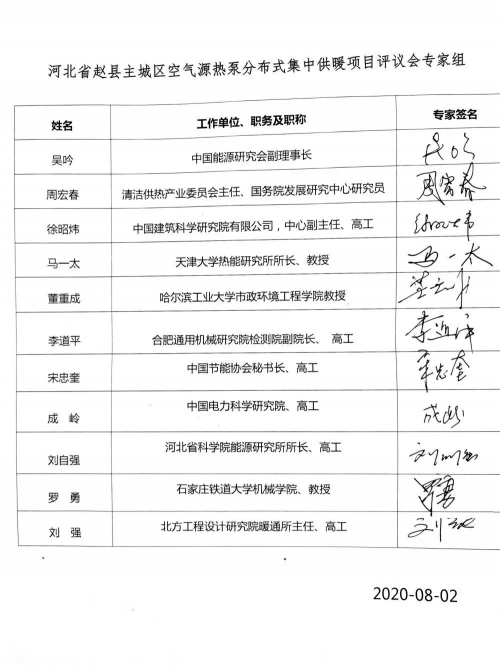 河北省赵县主城区空气源热泵分布式集中供暖项目评议会专家组
姓名 工作单位、职务及职称 专家签名
吴吟 中国能源研究会副理事长 吴吟
周宏春 清洁供热产业委员会主任、国务院发展研究中心研究员 周宏春
徐昭炜 中国建筑科学研究院有限公司，中心副主任、高工
马一太 天津大学热能研究所所长、教授 马一太
董重成 哈尔滨工业大学市政环境工程学院教授
李道平 合肥通用机械研究院检测院副院长、 高工
宋忠奎 中国节能协会秘书长、高工 宋忠奎
成 岭 中国电力科学研究院、高工 成岭
刘自强 河北省科学院能源研究所所长、高工
罗 勇 石家庄铁道大学机械学院、教授 罗勇
刘 强 北方工程设计研究院暖通所主任、高工 刘强
2020-08-02